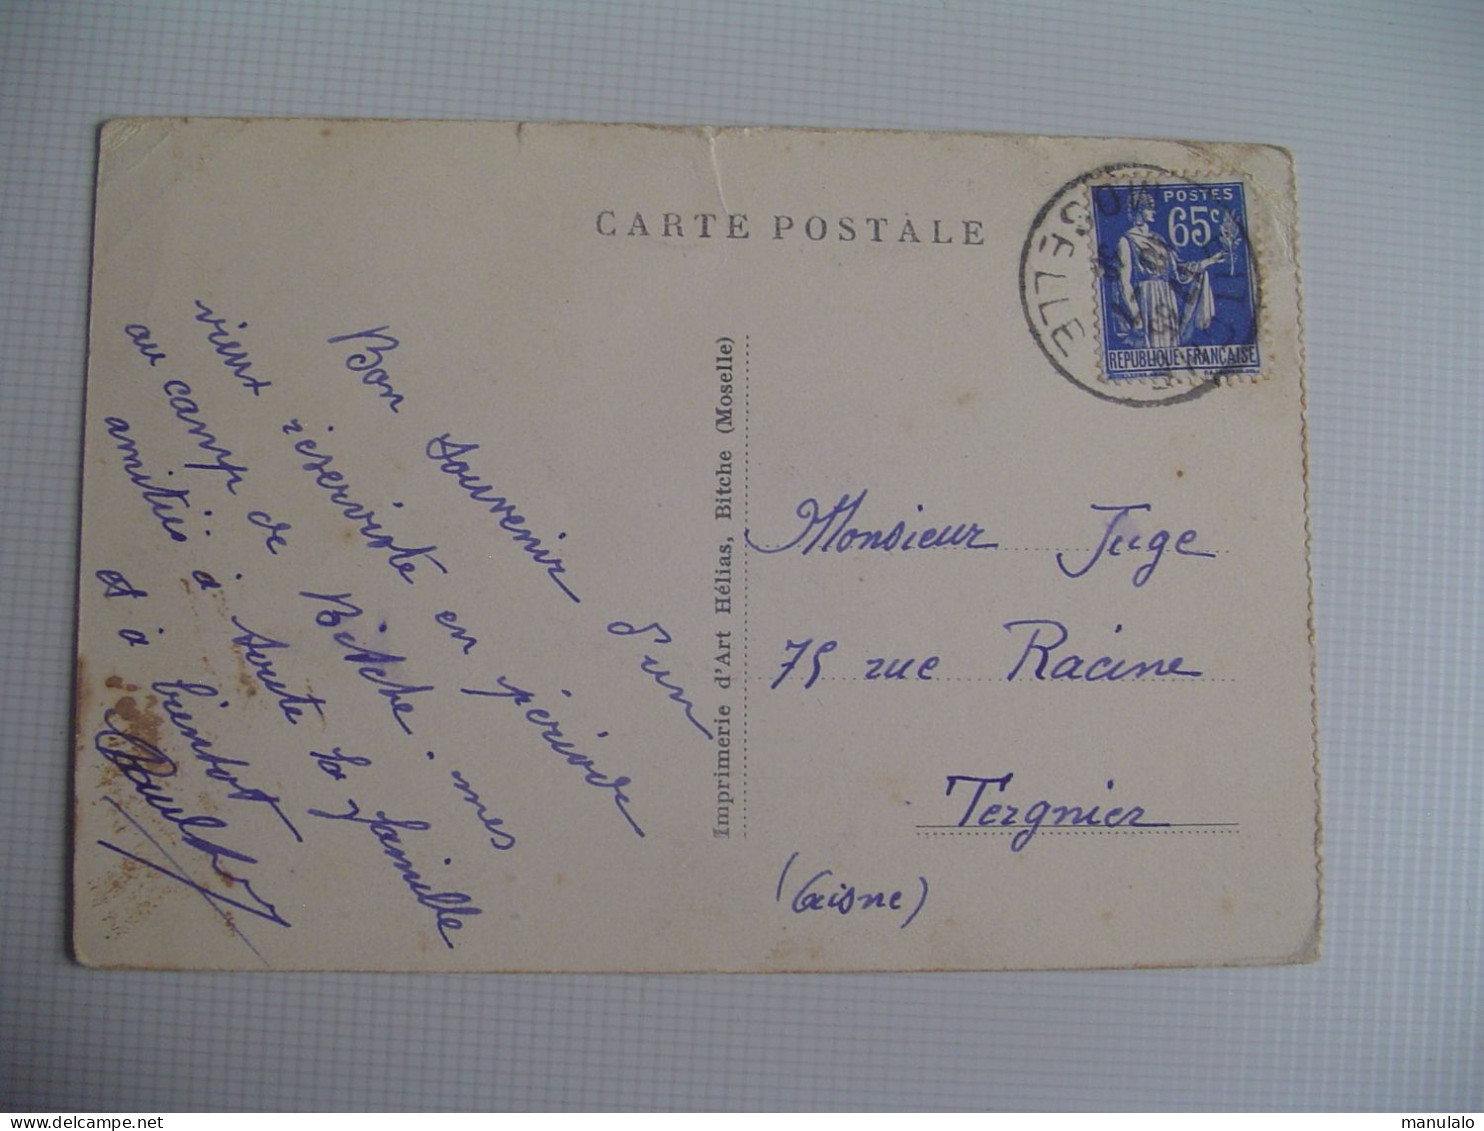 CARTE POSTALE
Bon souvenir d'un
vieux réserviste en période
au camp de Bitche. mes
amitiés à toute la famille
et à bientôt
Imprimerie d'Art Hélias, Bitche (Moselle)
MOSELLE
POSTES
65c
REPUBLIQUE FRANCAISE
Monsieur Juge
75 rue Racine
Tergnier
(Aisne)
manulalo